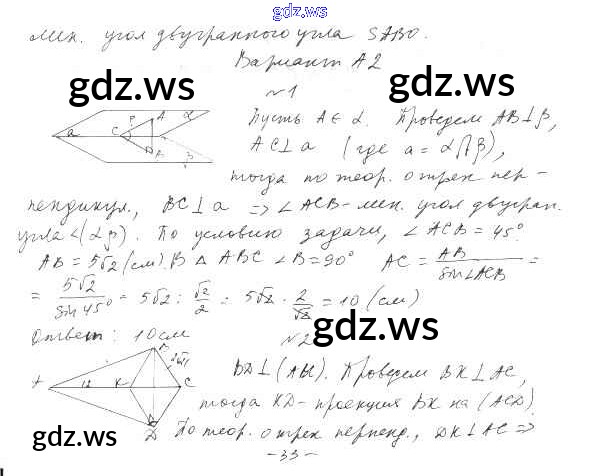 gdz.ws
лин. угол двугранного угла SABO.
Вариант А2
gdz.ws gdz.ws
№1
Пусть A ∈ α. Проведем AB⊥β,
AC⊥a (где a = α∩β),
тогда по теор. о трех пер-
пендикул., BC⊥a => ∠ACB - лин. угол двугран.
угла ∠(αβ). По условию задачи, ∠ACB = 45°
AB = 5√2 (см). В △ABC ∠B = 90° AC = AB / sin∠ACB =
= 5√2 / sin45° = 5√2 : √2/2 = 5√2 · 2/√2 = 10 (см)
Ответ: 10 см
gdz.ws
№2
BD⊥(ABC). Проведем BK⊥AC,
тогда KD - проекция BK на (ACD).
По теор. о трех перпенд., DK⊥AC =>
gdz.ws
- 33 -
gdz.ws